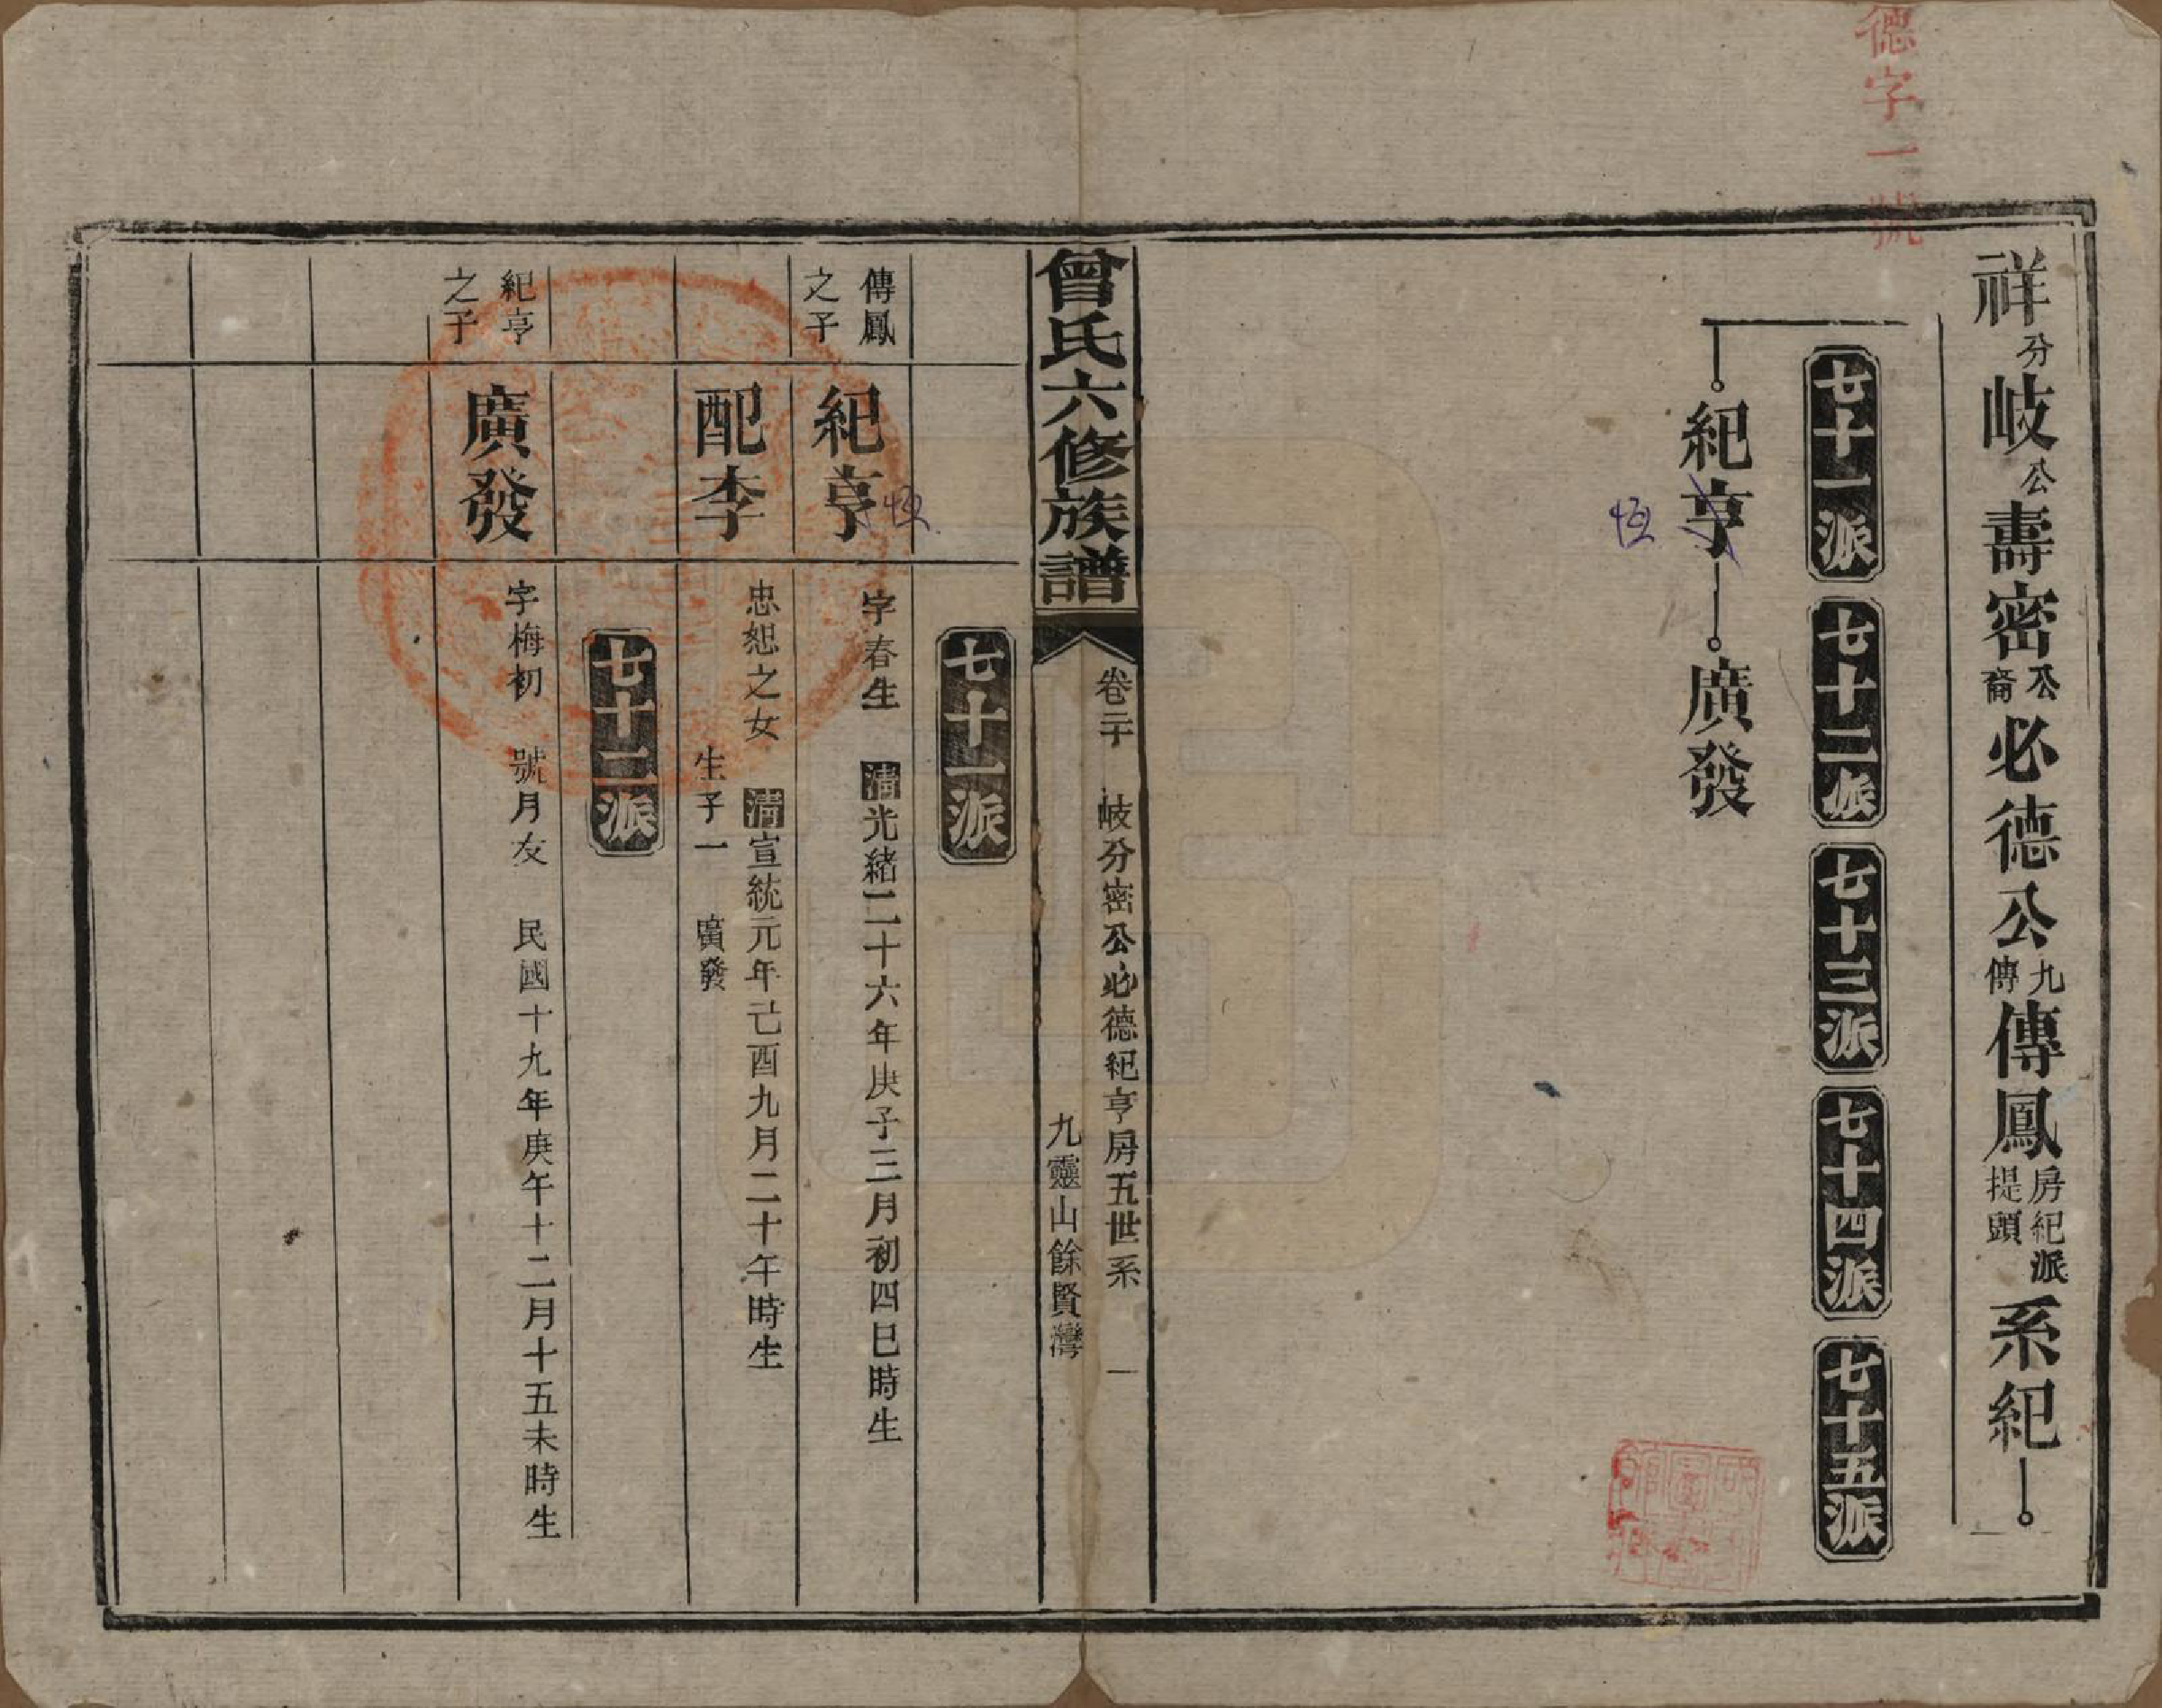 德字一號
祥分岐公壽密公裔必德公九傳傳鳳房紀派提頭系紀
七十一派 七十二派 七十三派 七十四派 七十五派
紀亨 廣發
恆
曾氏六修族譜
卷二十 岐分密公必德紀亨房五世系 一
九靈山餘賢灣
七十一派
傳鳳之子
紀亨
恆
字春生 清光緒二十六年庚子三月初四巳時生
配李
忠恕之女 清宣統元年己酉九月二十午時生
生子一 廣發
七十二派
紀亨之子
廣發
字梅初 號月友 民國十九年庚午十二月十五未時生